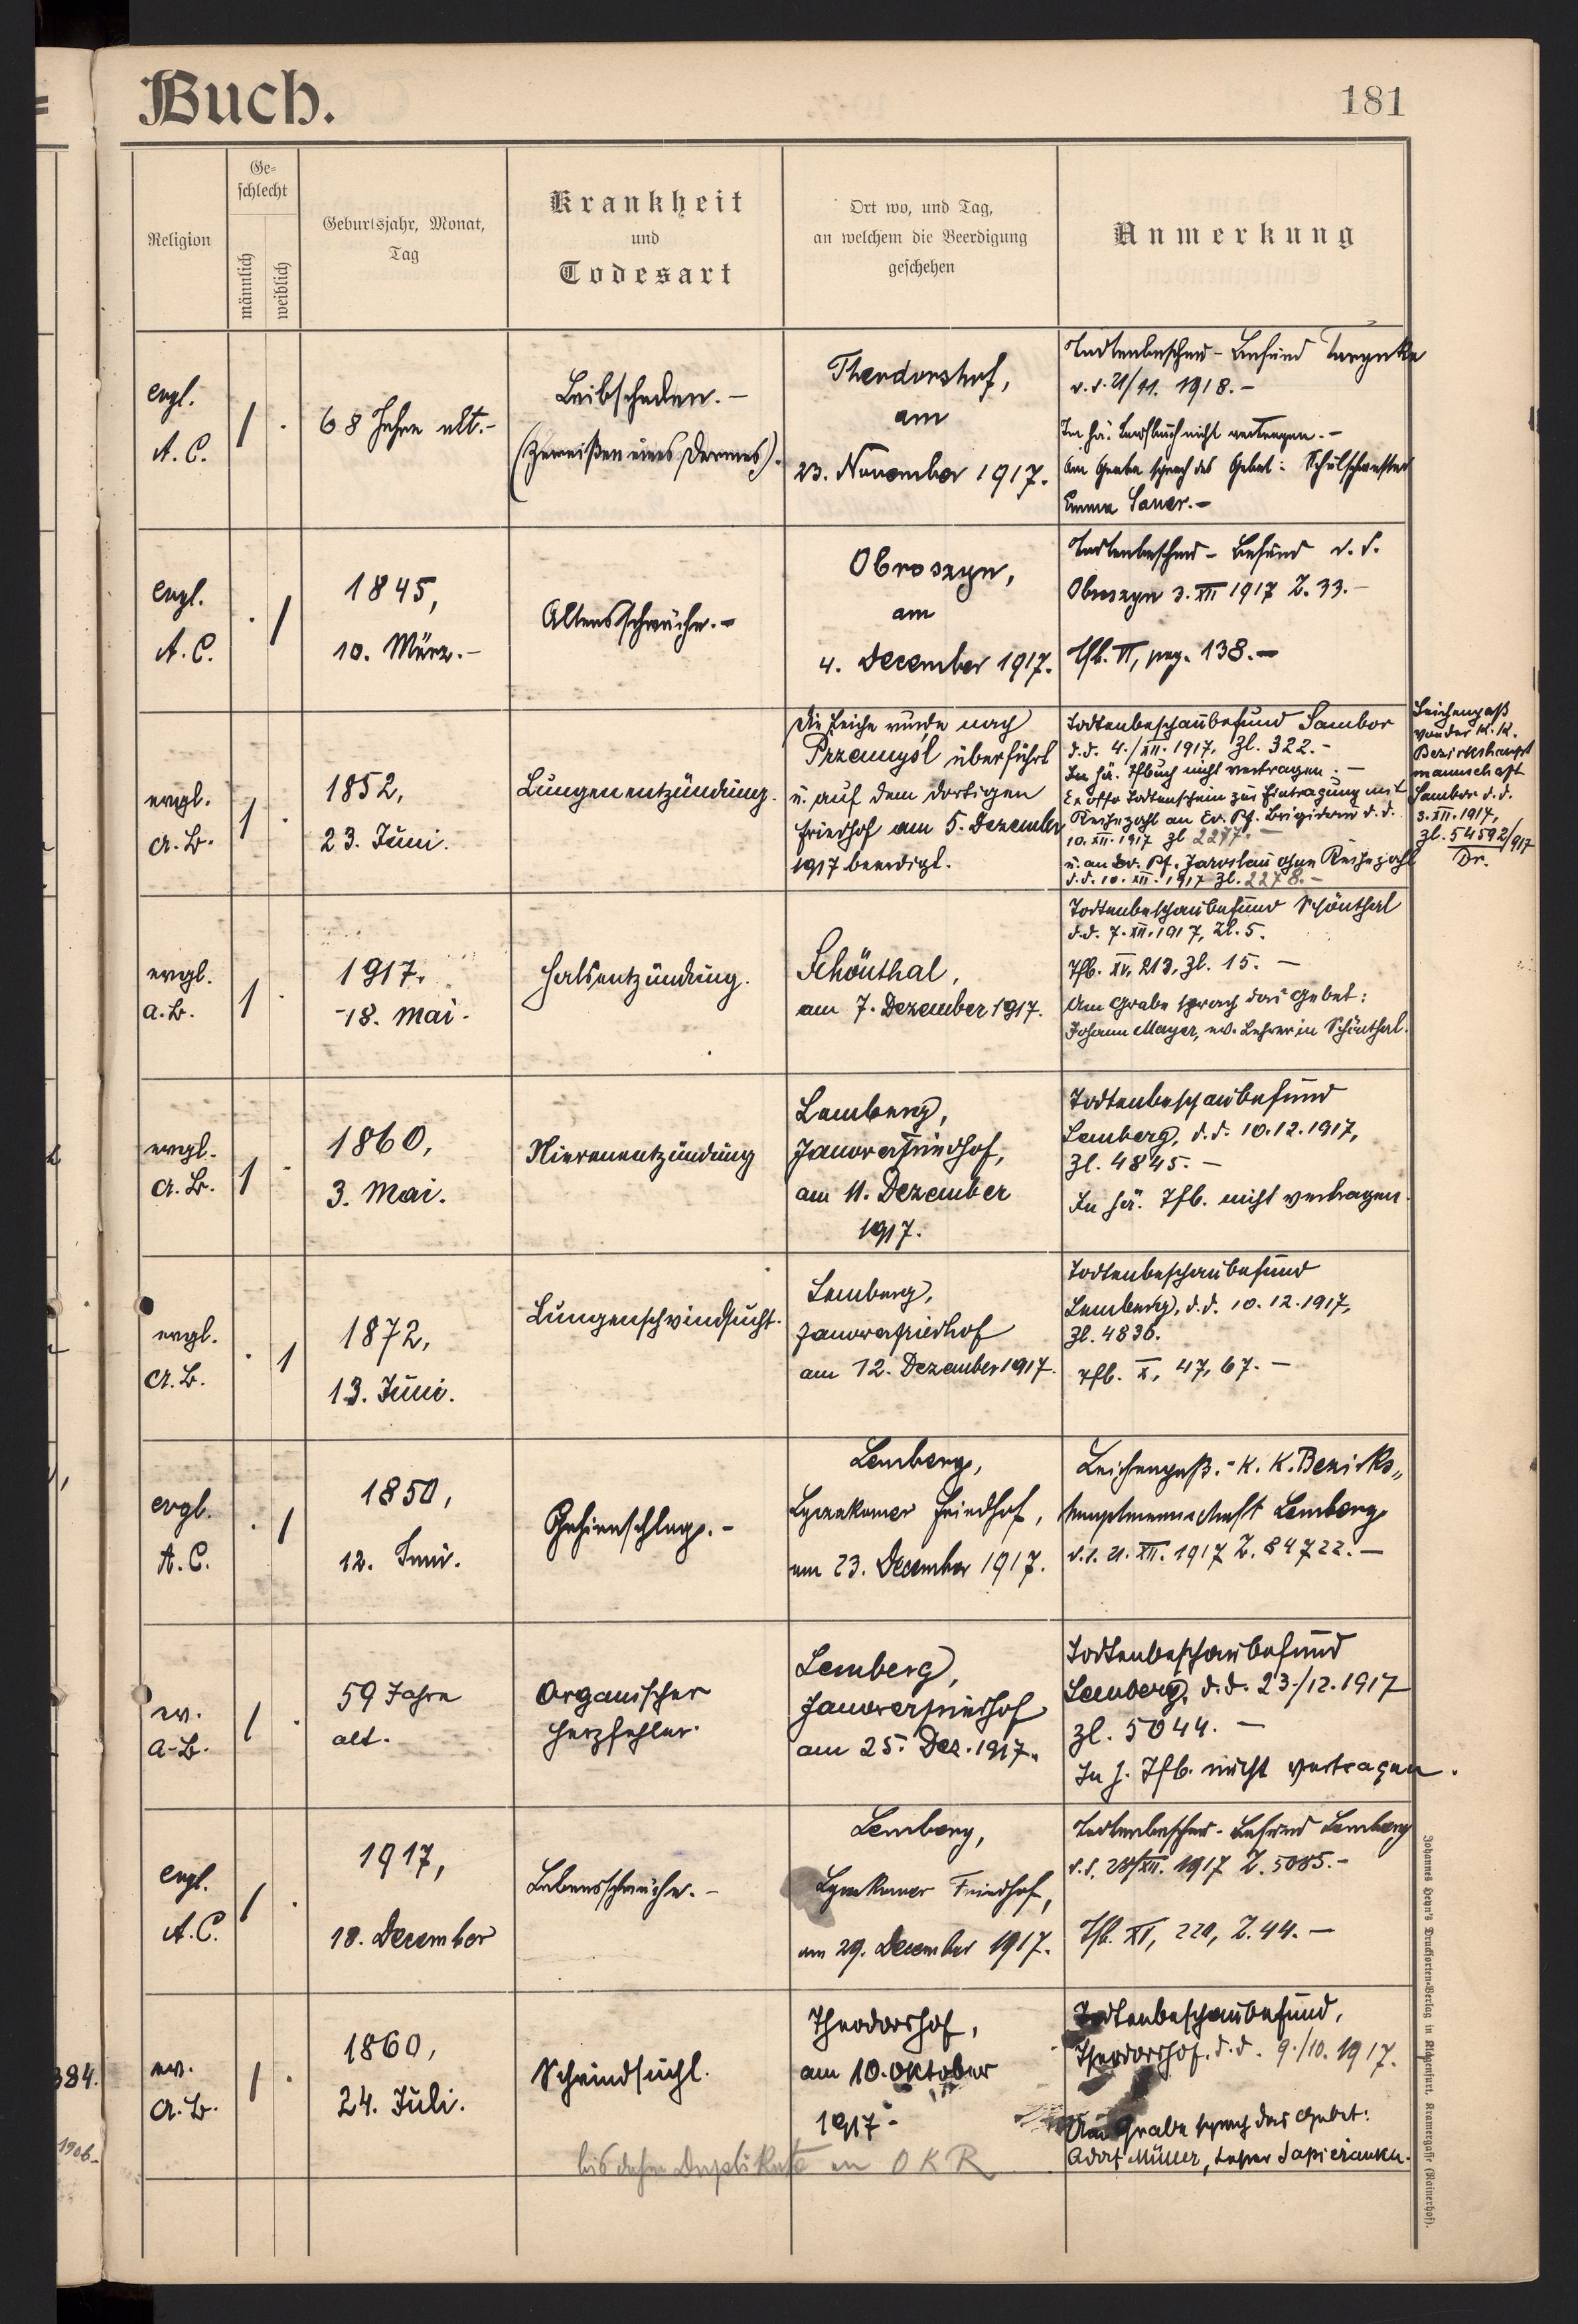 Buch.
181
Religion
Ge=
schlecht
männlich
weiblich
Geburtsjahr, Monat,
Tag
Krankheit
und
Todesart
Ort wo, und Tag,
an welchem die Beerdigung
geschehen
Anmerkung
evgl.
A. C.
1 .
68 Jahre alt.-
Leibschaden.-
(Zerreißen eines Darmes).
Theodorshof,
am
23. November 1917.
Todtenbeschau-Befund
d.d. 21/11. 1918.-
In hä. Taufbuch nicht vertragen.-
Am Grabe sprach das Gebet: Schulschwester
Emma Sauer.-
evgl.
A. C.
. 1
1845,
10. März.-
Altersschwäche.-
Obroszyn,
am
4. December 1917.
Todtenbeschau-Befund d.d.
Obroszyn 3. XII 1917 Z. 33.-
Tfb. VI, pag. 138.-
evgl.
A. B.
1 .
1852,
23. Juni.
Lungenentzündung.
Die Leiche wurde nach
Przemyśl überführt
u. auf dem dortigen
Friedhof am 5. Dezember
1917 beerdigt.
Todtenbeschaubefund Sambor
d.d. 4./XII. 1917, Zl. 322.-
In hä. Tfbuch nicht vertragen.-
Ex offo Todtenschein zur Eintragung mit
Reihezahl an Ev. Pf. Brigidau d.d.
10. XII. 1917 Zl 2277.-
u. an Ev. Pf. Jaroslau ohne Reihezahl
d.d. 10. XII. 1917 Zl. 2278.-
Leichenpaß
von der K. K.
Bezirkshaupt
mannschaft
Sambor d.d.
3. XII. 1917,
Zl. 54592/917
Dr.
evgl.
A. B.
1 .
1917.
18. Mai.
Halsentzündung.
Schönthal,
am 7. Dezember 1917.
Todtenbeschaubefund Schönthal
d.d. 7. XII. 1917, Zl. 5.
Tfb. XV, 213, Zl. 15.-
Am Grabe sprach das Gebet:
Johann Mayer, ev. Lehrer in Schönthal.
evgl.
A. B.
1 .
1860,
3. Mai.
Nierenentzündung
Lemberg,
Janowerfriedhof,
am 11. Dezember
1917.
Todtenbeschaubefund
Lemberg, d.d. 10.12.1917,
Zl. 4845.-
In hä. Tfb. nicht vertragen.
evgl.
A. B.
. 1
1872,
13. Juni.
Lungenschwindsucht.
Lemberg,
Janowerfriedhof
am 12. Dezember 1917.
Todtenbeschaubefund
Lemberg, d.d. 10.12.1917,
Zl. 4836.
Tfb. X, 47, 67.-
evgl.
A. C.
. 1
1850,
12. Juni.
Gehirnschlag.-
Lemberg,
Lyczakower Friedhof,
am 23. December 1917.
Leichenpaß.- K. K. Bezirks„
hauptmannschaft Lemberg
d.d. 21. XII. 1917 Z. 84722.-
ev.
A. B.
1 .
59 Jahre
alt.
Organischer
Herzfehler.
Lemberg,
Janowerfriedhof
am 25. Dez. 1917.
Todtenbeschaubefund
Lemberg, d.d. 23./12. 1917
Zl. 5044.-
In h. Tfb. nicht vertragen.
evgl.
A. C.
1 .
1917,
18. December
Lebensschwäche.-
Lemberg,
Lyczakower Friedhof,
am 29. December 1917.
Todtenbeschau-Befund Lemberg
d.d. 28/XII. 1917 Z. 5085.-
Tfb. XI, 220, Z. 44.-
ev.
A. B.
1 .
1860,
24. Juli.
Schwindsucht.
Theodorshof,
am 10. Oktober
1917.
Todtenbeschaubefund,
Theodorshof. d.d. 9./10. 1917.
Am Grabe sprach das Gebet:
Adolf Müller, Lehrer Sapieżanka.
384.
1906.
bis daher Duplikate an OKR
Johannes Heyn's Drucksorten-Verlag in Klagenfurt, Kramergasse (Rainerhof).